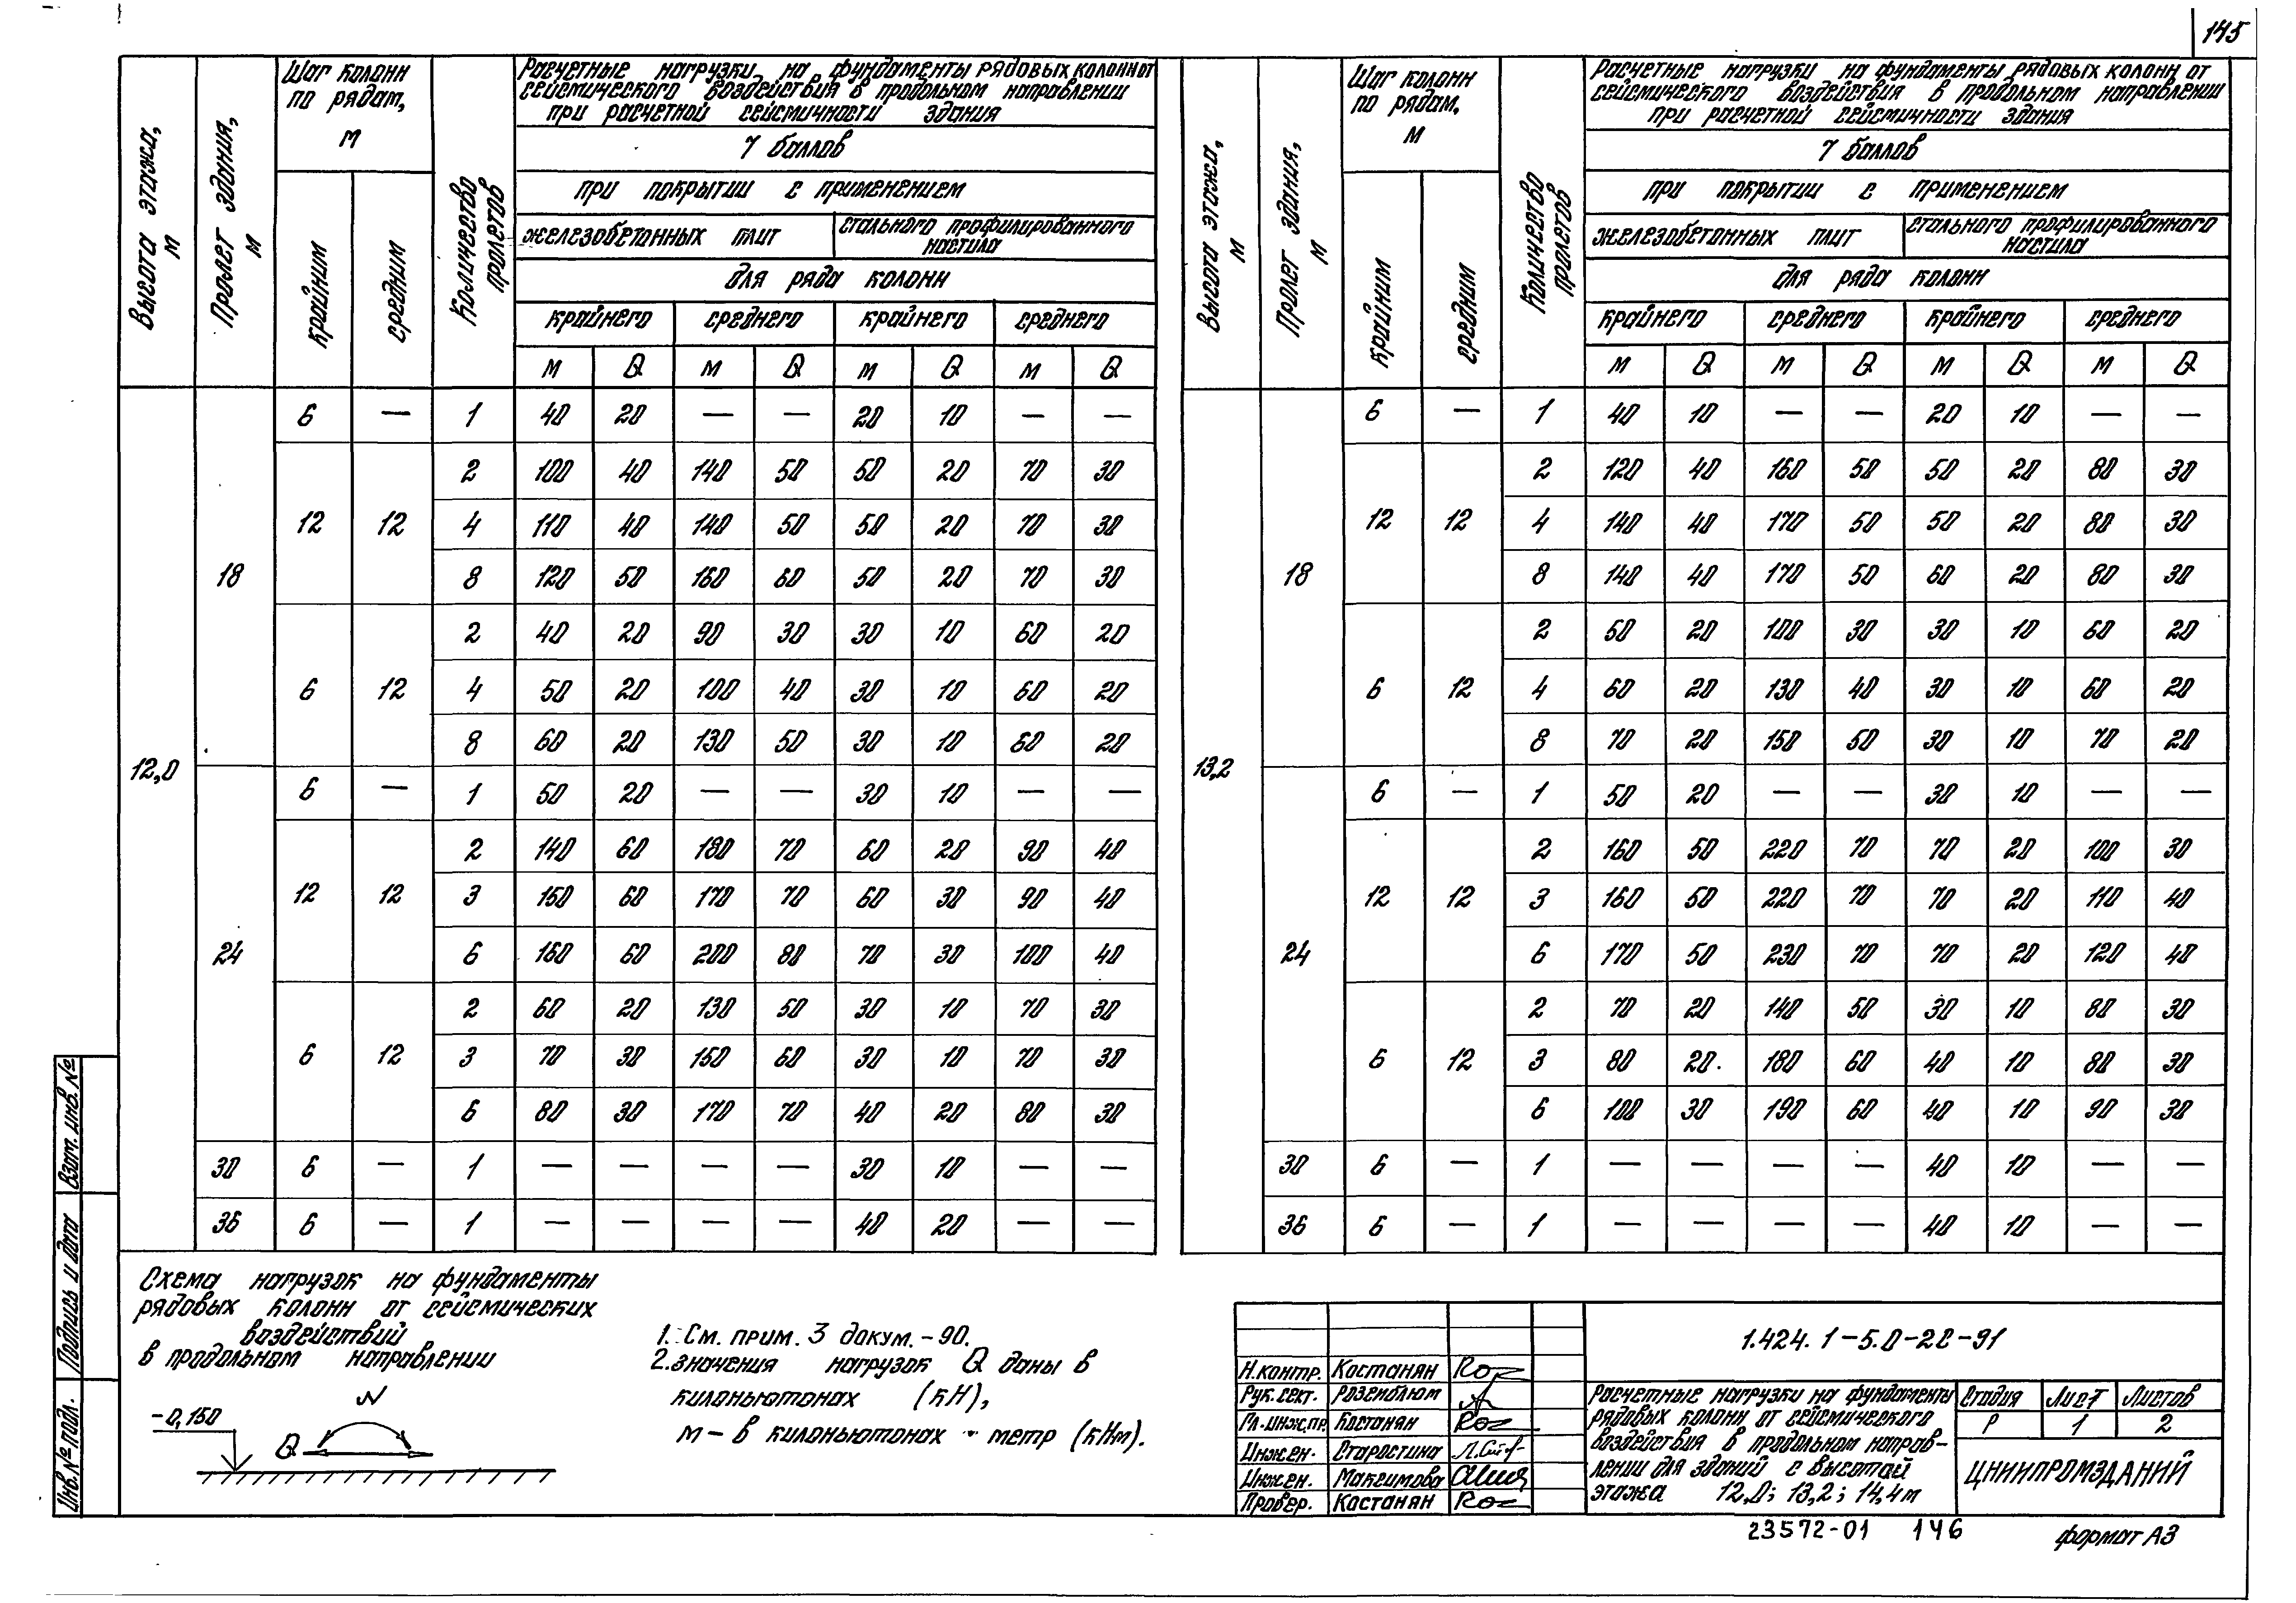 145
Высота этажа, м
Пролет здания, м
Шаг колонн по рядам, м
крайним
средним
Количество пролетов
Расчетные нагрузки на фундаменты рядовых колонн от
сейсмического воздействия в продольном направлении
при расчетной сейсмичности здания
7 баллов
при покрытии с применением
железобетонных плит
стального профилированного настила
для ряда колонн
крайнего среднего крайнего среднего
М Q М Q М Q М Q
12,0
18
6 — 1 40 20 — — 20 10 — —
12 12
2 100 40 140 50 50 20 70 30
4 110 40 140 50 50 20 70 30
8 120 50 160 60 50 20 70 30
6 12
2 40 20 90 30 30 10 60 20
4 50 20 100 40 30 10 60 20
8 60 20 130 50 30 10 60 20
24
6 — 1 50 20 — — 30 10 — —
12 12
2 140 60 180 70 60 20 90 40
3 150 60 170 70 60 30 90 40
6 160 60 200 80 70 30 100 40
6 12
2 60 20 130 50 30 10 70 30
3 70 30 150 60 30 10 70 30
6 80 30 170 70 40 20 80 30
30 6 — 1 — — — — 30 10 — —
36 6 — 1 — — — — 40 20 — —
Высота этажа, м
Пролет здания, м
Шаг колонн по рядам, м
крайним
средним
Количество пролетов
Расчетные нагрузки на фундаменты рядовых колонн от
сейсмического воздействия в продольном направлении
при расчетной сейсмичности здания
7 баллов
при покрытии с применением
железобетонных плит
стального профилированного настила
для ряда колонн
крайнего среднего крайнего среднего
М Q М Q М Q М Q
13,2
18
6 — 1 40 10 — — 20 10 — —
12 12
2 120 40 160 50 50 20 80 30
4 140 40 170 50 50 20 80 30
8 140 40 170 50 60 20 80 30
6 12
2 50 20 100 30 30 10 60 20
4 60 20 130 40 30 10 60 20
8 70 20 150 50 30 10 70 20
24
6 — 1 50 20 — — 30 10 — —
12 12
2 160 50 220 70 70 20 100 30
3 160 50 220 70 70 20 110 40
6 170 50 230 70 70 20 120 40
6 12
2 70 20 140 50 30 10 80 30
3 80 20 180 60 40 10 80 30
6 100 30 190 60 40 10 90 30
30 6 — 1 — — — — 40 10 — —
36 6 — 1 — — — — 40 10 — —
Схема нагрузок на фундаменты
рядовых колонн от сейсмических
воздействий
в продольном направлении
-0,150
N
Q
1. См. прим. 3 докум. - 90.
2. значения нагрузок Q даны в
килоньютонах (кН),
м - в килоньютонах · метр (кНм).
Взам. инв. №
Подпись и дата
Инв. № подл.
Н.контр. Костанян
Рук.сект. Розенблюм
Гл.инж.пр. Костанян
Инжен. Старостина
Инжен. Максимова
Провер. Костанян
1.424.1-5.0-2С-91
Расчетные нагрузки на фундаменты
рядовых колонн от сейсмического
воздействия в продольном направ-
лении для зданий с высотой
этажа 12,0; 13,2; 14,4м
Стадия Лист Листов
Р 1 2
ЦНИИПРОМЗДАНИЙ
23572-01 146
формат А3